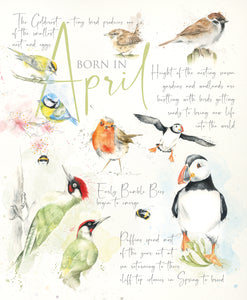 The Goldcrest, a tiny bird produces one of
of the smallest
nest and eggs
BORN IN
April
Height of the nesting season
gardens and woodlands are
bustling with birds getting
ready to bring new life
into the world
Early Bumble Bees
begin to emerge
Puffins spend most
of the year out at
sea returning to their
cliff top colonies in Spring to breed